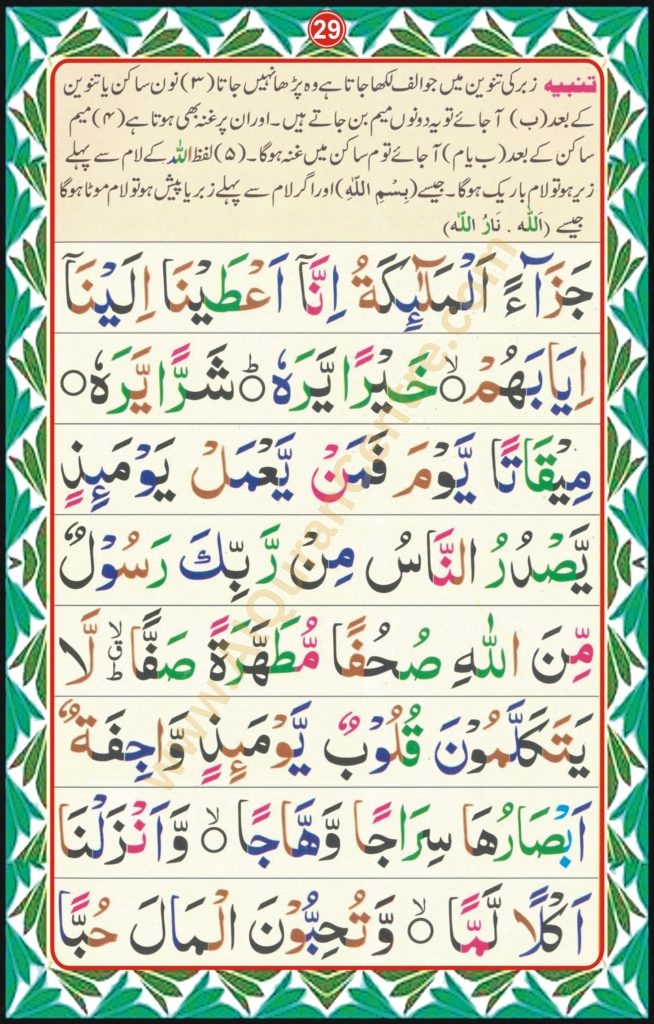 29
تنبیہ زبر کی تنوین میں جو الف لکھا جاتا ہے وہ پڑھا نہیں جاتا (۳) نون ساکن یا تنوین
کے بعد (ب) آ جائے تو یہ دونوں میم بن جاتے ہیں۔ اور ان پر غنہ بھی ہوتا ہے (۴) میم
ساکن کے بعد (ب یا م) آ جائے تو م ساکن میں غنہ ہوگا۔ (۵) لفظ اللہ کے لام سے پہلے
زیر ہو تو لام باریک ہوگا۔ جیسے (بِسْمِ اللّٰهِ) اور اگر لام سے پہلے زبر یا پیش ہو تو لام موٹا ہوگا
جیسے (اَللّٰه ۔ نَارُ اللّٰه)
جَزَآءً اَلْمَلٰٓئِكَةُ اِنَّآ اَعْطَيْنَا اِلَيْنَآ
اِيَابَهُمْ ۙ○ خَيْرًا يَّرَهٗ ○ؕ شَرًّا يَّرَهٗ ○
مِيْقَاتًا يَّوْمَ فَمَنْ يَّعْمَلْ يَوْمَئِذٍ
يَّصْدُرُ النَّاسُ مِنْ رَّبِّكَ رَسُوْلٌ
مِّنَ اللّٰهِ صُحُفًا مُّطَهَّرَةً صَفًّا ۙؕق لَّا
يَتَكَلَّمُوْنَ قُلُوْبٌ يَّوْمَئِذٍ وَّاجِفَةٌ
اَبْصَارُهَا سِرَاجًا وَّهَّاجًا ۙ○ وَّاَنْزَلْنَا
اَكْلًا لَّمًّا ۙ○ وَّتُحِبُّوْنَ الْمَالَ حُبًّا
www.AlQuranCentre.com